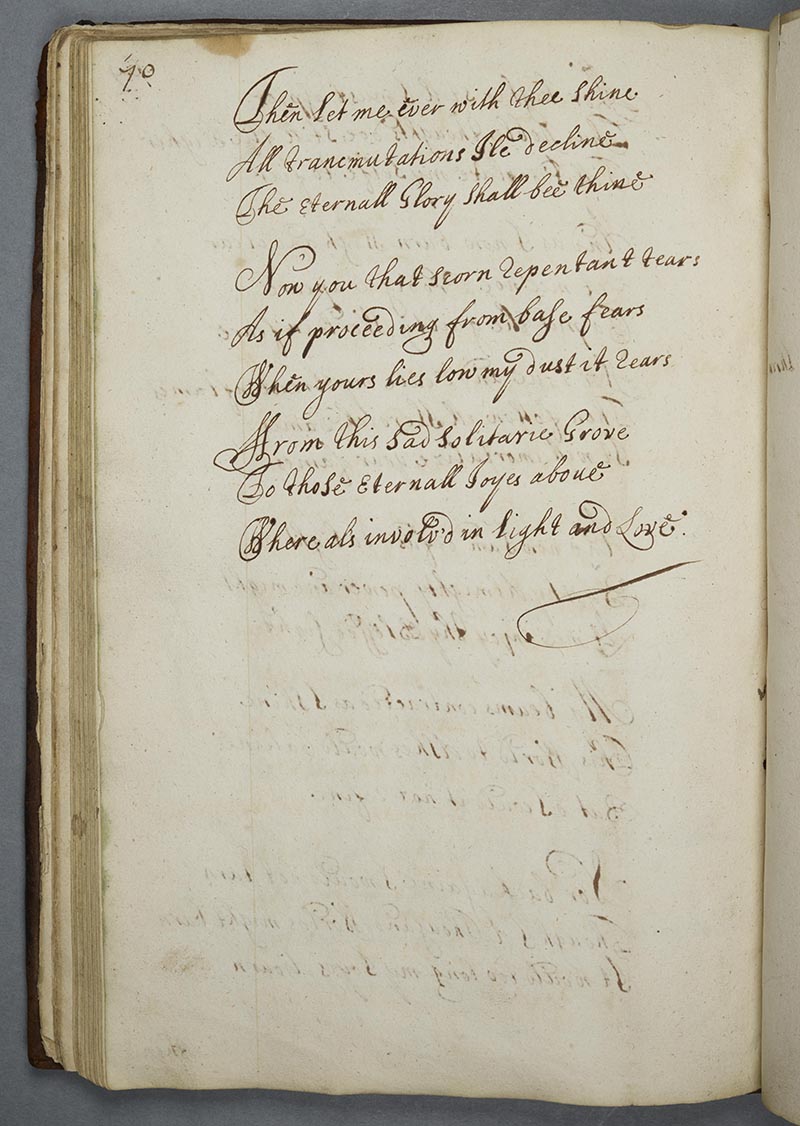 70
Then let me ever with thee shine
All trancmutations Ile decline
The Eternall Glory shall bee thine
Now you that scorn repentant tears
As if proceeding from base fears
When yours lies low my dust it rears
From this sad solitarie Grove
To those Eternall Joyes above
Where als involv'd in light and Love.